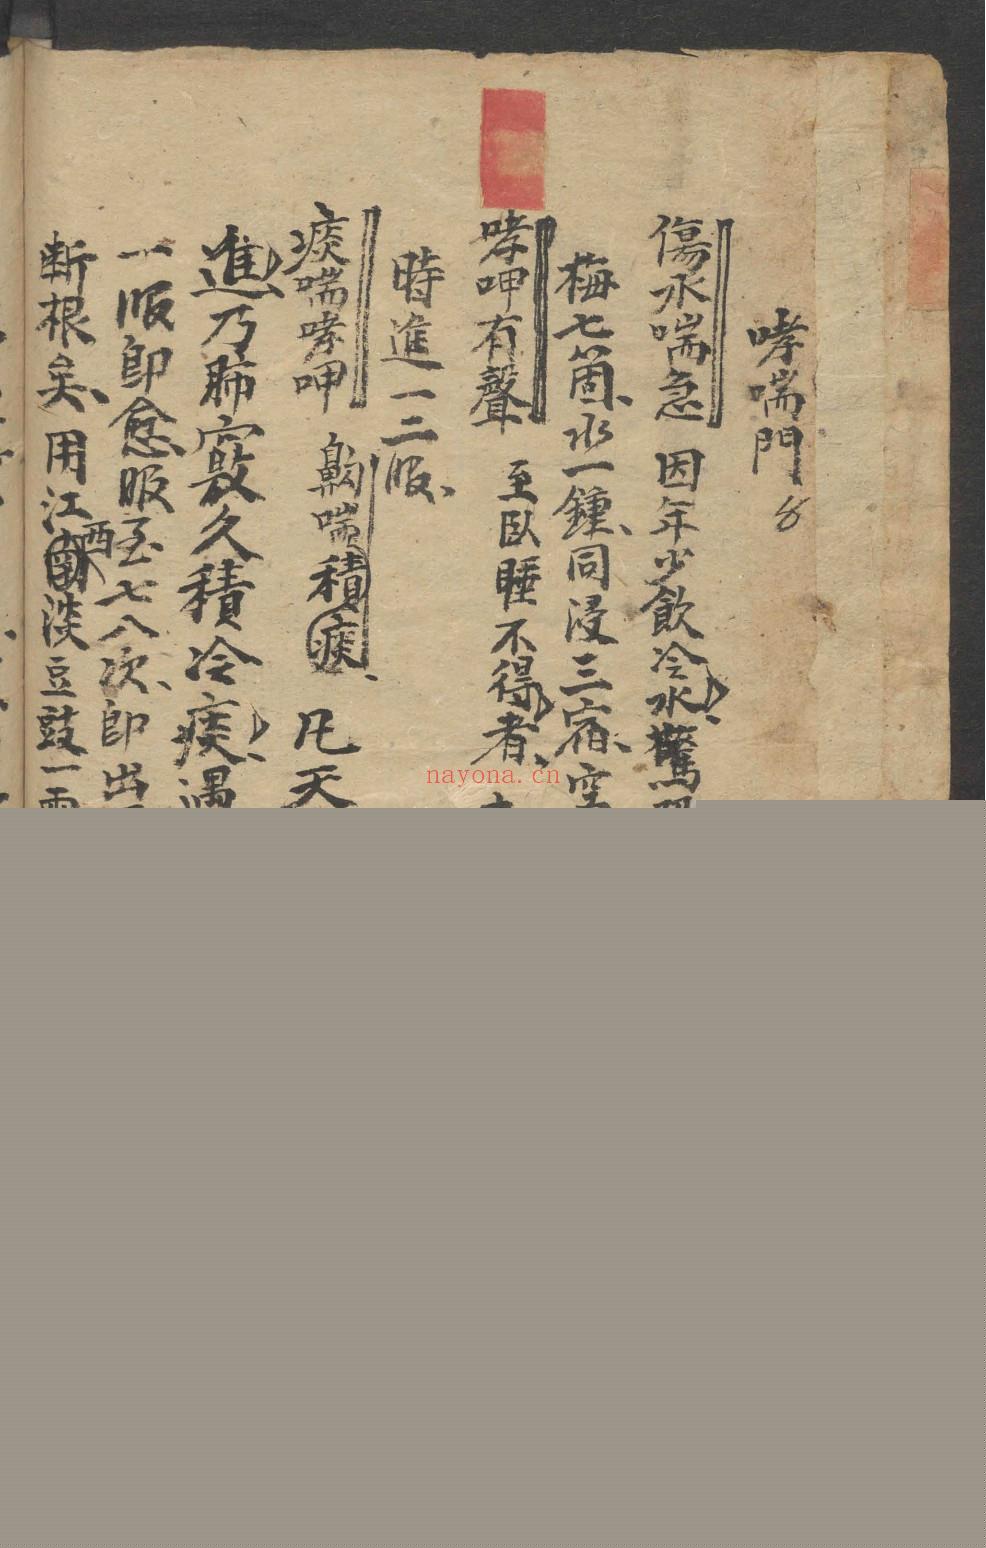 哮喘門 8
傷水喘急 因年少飲冷水驚
梅七箇水一鍾同浸三宿空
哮呷有聲 至臥睡不得者
時進一二服
痰喘哮呷 齁喘積痰 凡天
進乃肺竅久積冷痰遇
一服即愈服至七八次即出
断根矣用江西淡豆豉一兩
nayona.cn